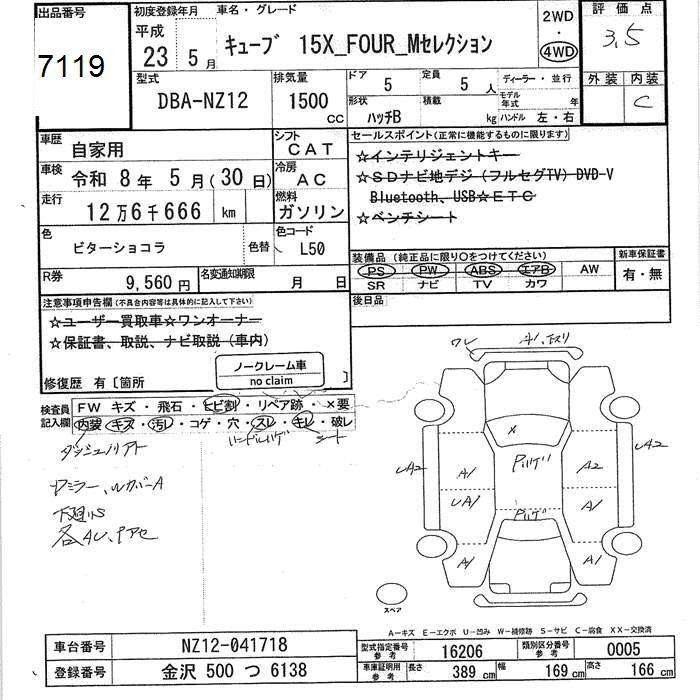 出品番号
7119
初度登録年月
平成
23 5月
車名・グレード
キューブ 15X_FOUR_Mセレクション
2WD
・
4WD
評価点
3.5
外装 内装
C
型式
DBA-NZ12
排気量
1500
CC
ドア
5
定員
5人
形状
ハッチB
積載
kg
ディーラー・並行
モデル年式 年
ハンドル 左・右
車歴
自家用
シフト
CAT
車検
令和 8年 5月(30日)
冷房
AC
走行
12万6千666 km
燃料
ガソリン
色
ビターショコラ
色替
色コード
L50
R券
9,560円
名変通知期限
月 日
セールスポイント(正常に機能するものに限ります)
☆インテリジェントキー
☆SDナビ地デジ(フルセグTV)DVD-V
Bluetooth、USB☆ETC
☆ベンチシート
装備品(純正品に限り○をつけてください)
PS PW ABS エアB AW
SR ナビ TV カワ
新車保証書
有・無
後日品
注意事項申告欄(不具合内容等は具体的に記入して下さい)
☆ユーザー買取車☆ワンオーナー
☆保証書、取説、ナビ取説(車内)
ノークレーム車
no claim
修復歴 有〔箇所 〕
検査員記入欄
FW キズ・飛石・ヒビ割・リペア跡・×要
内装 キズ・汚レ・コゲ・穴・スレ・キレ・破レ
ハンドルハゲ シート
下廻りS
ワレ
A1
UA2
A1
UA1
A1
X
A2
A1
A1
UA2
スペア
A-キズ E-エクボ U-凹み W-補修跡 S-サビ C-腐食 XX-交換済
車台番号 NZ12-041718
登録番号 金沢 500 つ 6138
型式指定番号 参考 16206
類別区分番号 参考 0005
車庫証明用 参考 長さ 389 cm 幅 169 cm 高さ 166 cm